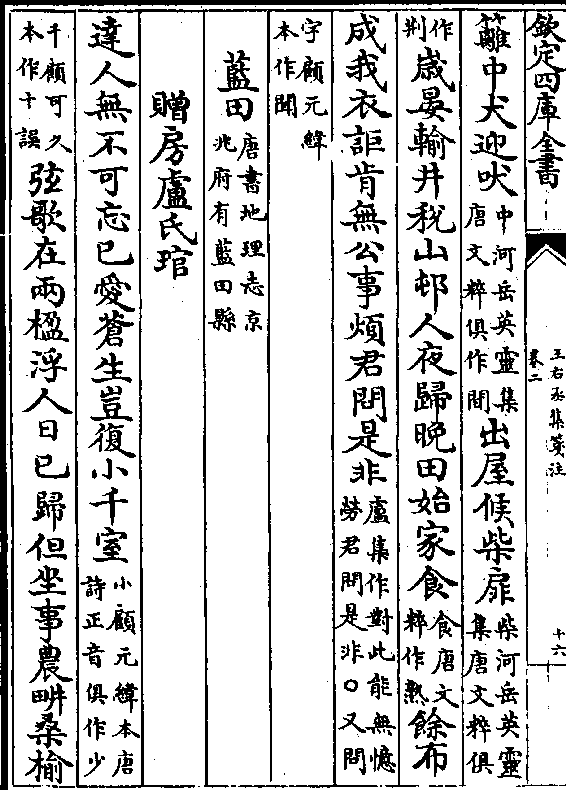 欽定四庫全書
王右丞集箋注
卷二
十六
籬中犬迎吠中河岳英靈集唐文粹俱作間出屋候柴扉柴河岳英靈集唐文粹俱
作荆歲晏輸井稅山邨人夜歸晚田始家食食唐文粹作熟餘布
成我衣詎肯無公事煩君問是非盧集作對此能無憶勞君問是非○又問
字顧元緯本作聞
藍田唐書地理志京兆府有藍田縣
贈房盧氏琯
達人無不可忘已愛蒼生豈復小千室小顧元緯本唐詩正音俱作少
千顧可久本作十誤弦歌在兩楹浮人日已歸但坐事農畊桑榆